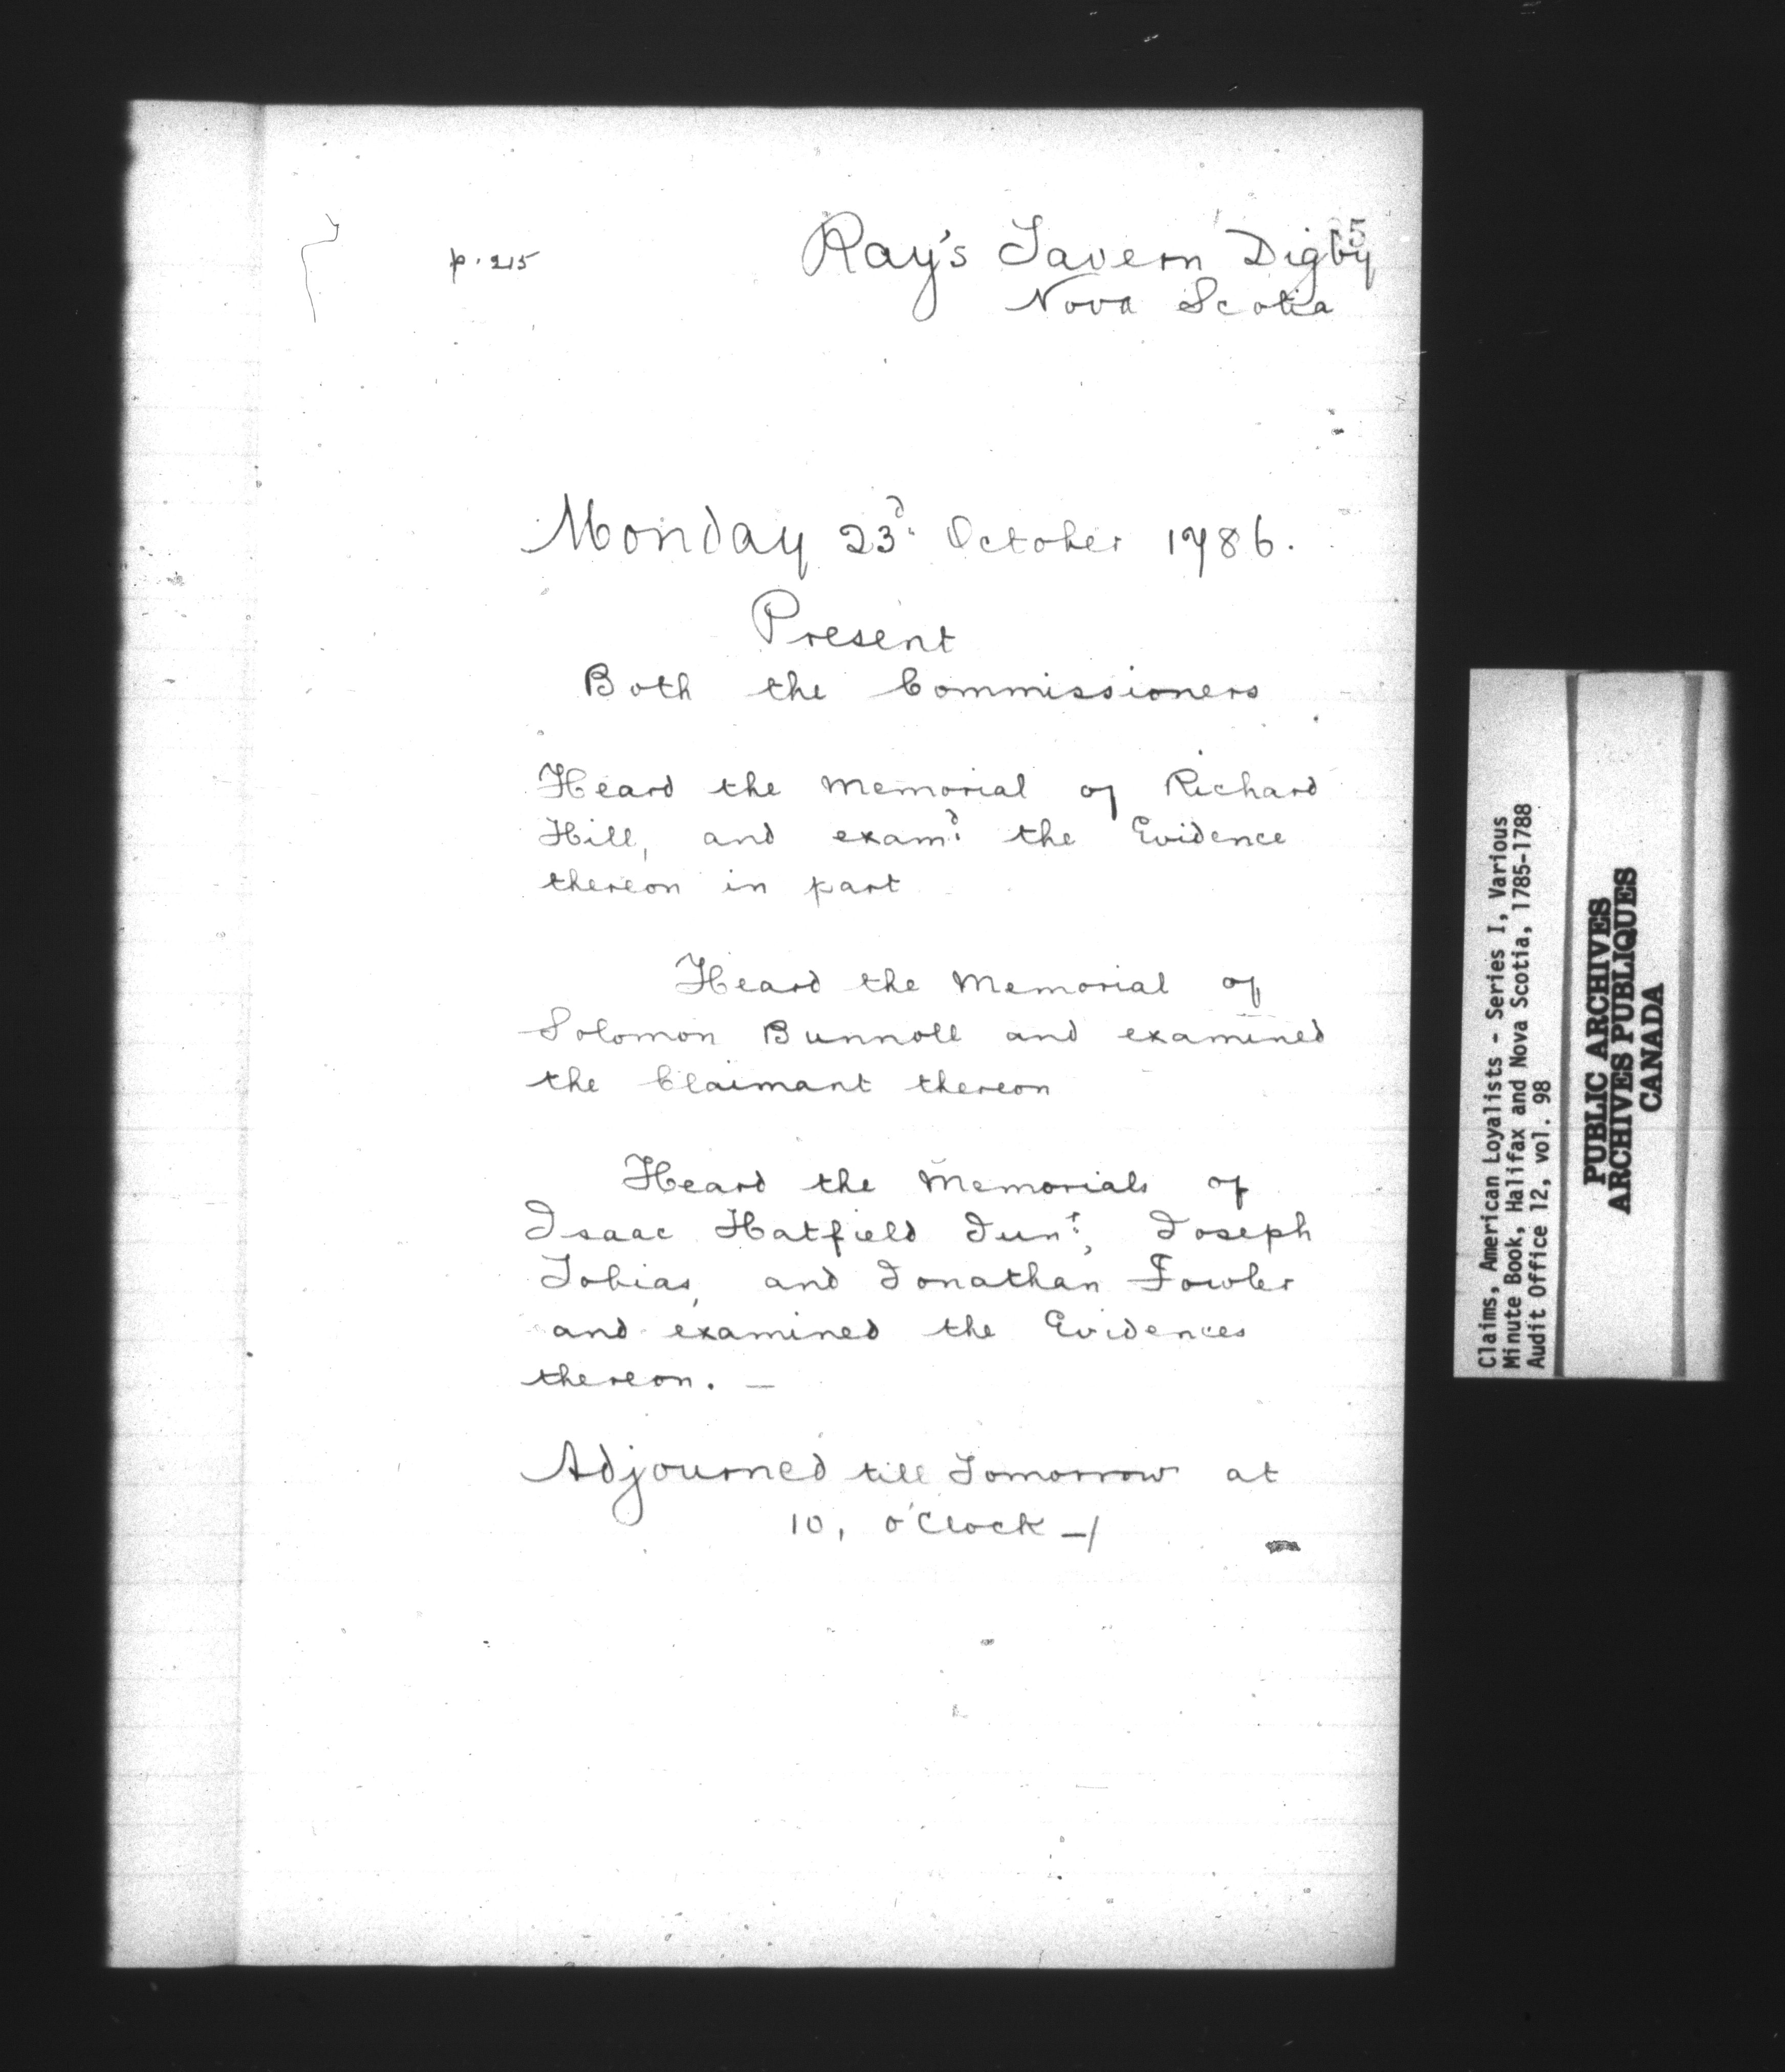 p. 215
Ray's Tavern Digby
Nova Scotia
Monday 23d. October 1786.
Present
Both the Commissioners
Heard the Memorial of Richard
Hill, and examd. the Evidence
thereon in part
Heard the Memorial of
Solomon Bunnoll and examined
the Claimant thereon
Heard the Memorials of
Isaac Hatfield Junr., Joseph
Tobias, and Jonathan Fowler
and examined the Evidences
thereon. —
Adjourned till Tomorrow at
10, o'Clock —/
Claims, American Loyalists - Series I, Various
Minute Book, Halifax and Nova Scotia, 1785-1788
Audit Office 12, vol. 98
PUBLIC ARCHIVES
ARCHIVES PUBLIQUES
CANADA